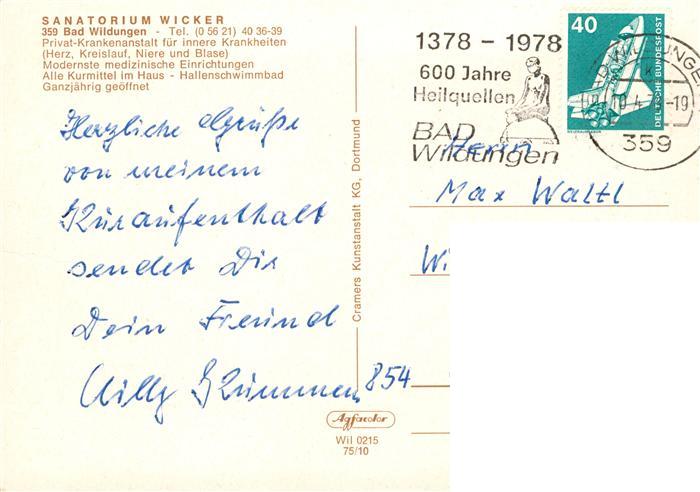 SANATORIUM WICKER
359 Bad Wildungen - Tel. (0 56 21) 40 36-39
Privat-Krankenanstalt für innere Krankheiten
(Herz, Kreislauf, Niere und Blase)
Modernste medizinische Einrichtungen
Alle Kurmittel im Haus - Hallenschwimmbad
Ganzjährig geöffnet
Herzliche Grüße
von meinem
Kuraufenthalt
sendet Dir
Dein Freund
Willy
Cramers Kunstanstalt KG, Dortmund
Agfacolor
Wil 0215
75/10
1378 - 1978
600 Jahre
Heilquellen
BAD
Wildungen
40
DEUTSCHE BUNDESPOST
359
Herrn
Max Waltl
854